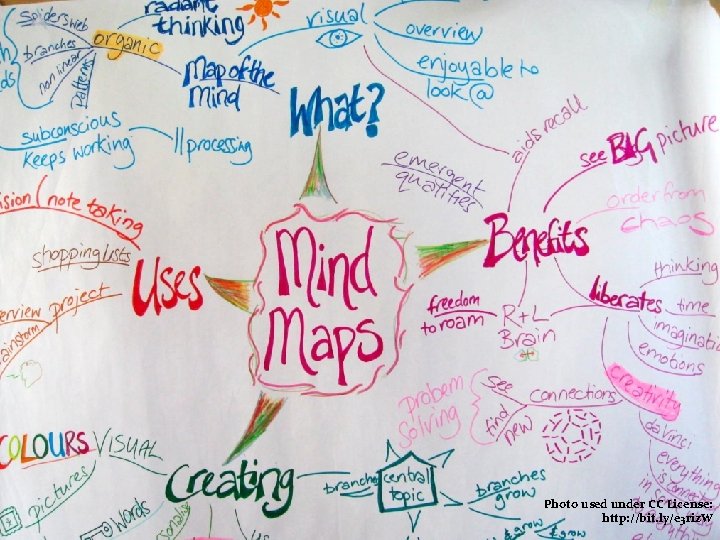 spidersweb
branches
non linear
patterns
organic
radiant
thinking
Map of the
Mind
subconscious
keeps working
|| processing
What?
visual
overview
enjoyable to
look @
aids recall
emergent
qualities
see BIG picture
order from
chaos
Benefits
thinking
liberates
time
imagination
emotions
creativity
da vinci
everything
is connected
freedom
to roam
R+L
Brain
Mind
Maps
Uses
note taking
shopping lists
project
problem
solving
see
find
new
connections
COLOURS
VISUAL
pictures
words
Creating
branches
central
topic
branches
grow
& grow
& grow
Photo used under CC License:
http://bit.ly/e3rizW